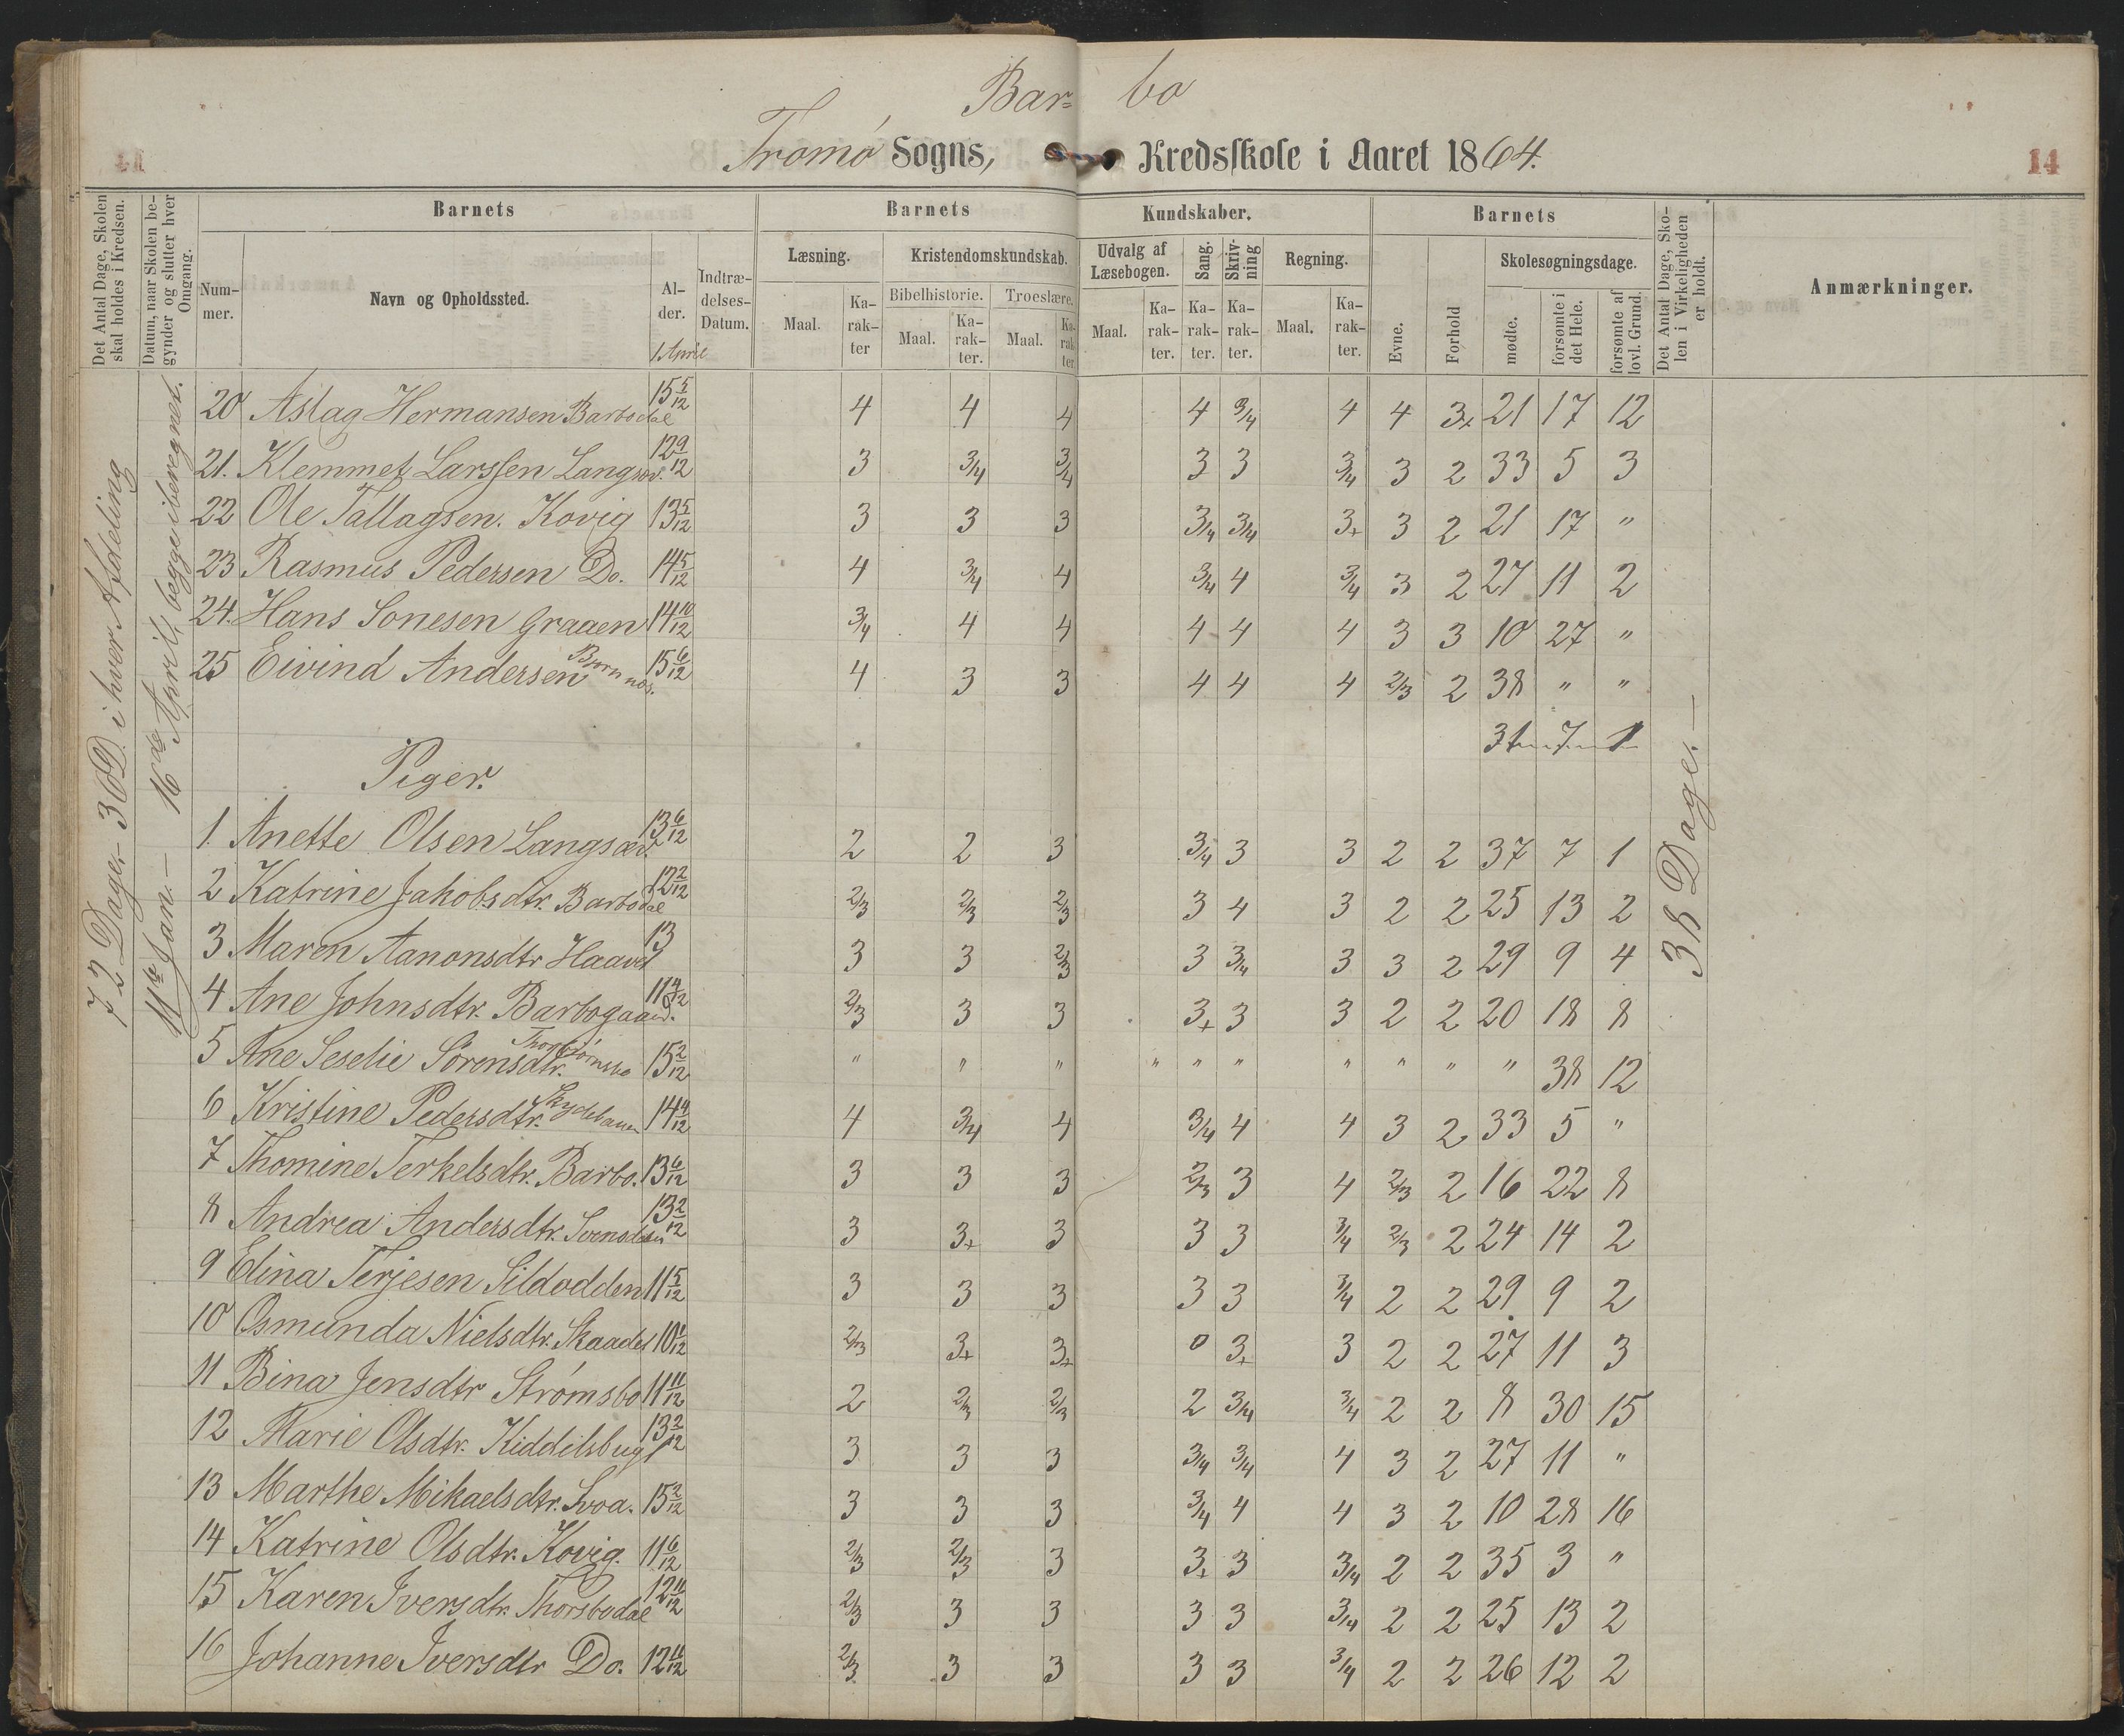 Bar= bo
Tromø Sogns, Kredsskole i Aaret 1864.
14
Det Antal Dage, Skolen skal holdes i Kredsen.
Datum, naar Skolen begynder og slutter hver Omgang.
Barnets
Barnets
Kundskaber.
Barnets
Det Antal Dage, Skolen i Virkeligheden er holdt.
Anmærkninger.
Nummer.
Navn og Opholdssted.
Alder.
1 April
Indtrædelses-Datum.
Læsning.
Kristendomskundskab.
Udvalg af Læsebogen.
Sang.
Skrivning
Regning.
Evne.
Forhold
Skolesøgningsdage.
Bibelhistorie.
Troeslære.
Maal.
Karakter
Maal.
Karakter.
Maal.
Karakter
Maal.
Karakter.
Karakter.
Karakter.
Maal.
Karakter.
mødte.
forsømte i det Hele.
forsømte af lovl. Grund.
72 Dage - 36 D. i hver Afdeling
11te Jan. — 16de April, begge iberegnet.
38 Dage. —
20 Aslag Hermansen Barbodal 15 5/12 4 4 4 4 3/4 4 4 3+ 21 17 12
21. Klemmet Larssen Langsæd. 12 9/12 3 3/4 3/4 3 3 3/4 3 2 33 5 3
22 Ole Tallagsen. Kovig 13 5/12 3 3 3 3/4 3/4 3+ 3 2 21 17 "
23 Rasmus Pedersen Do. 14 5/12 4 3/4 4 3/4 4 3/4 3 2 27 11 2
24. Hans Sonesen Graaen 14 10/12 3/4 4 4 4 4 4 3 3 10 27 "
25 Eivind Andersen Bjørnnes. 15 6/12 4 3 3 4 4 4 2/3 2 38 " "
31 — 7 — 1
Piger.
1. Anette Olsen Langsæd. 13 6/12 2 2 3 3/4 3 3 2 2 37 7 1
2 Katrine Jakobsdtr. Barbodal 12 2/12 2/3 2/3 2/3 3 4 3 2 2 25 13 2
3 Maren Aanonsdtr Haavet 13 3 3 2/3 3 3/4 3 3 2 29 9 4
4 Ane Johnsdtr. Barbogaard. 11 9/12 2/3 3 3 3+ 3 3 2 2 20 18 8
5 Ane Seselie Sørensdtr. Thorbjørnsbo 15 2/12 " " " " " " " " " " 38 12
6 Kristine Pedersdtr. 14 4/12 4 3/4 4 3/4 4 4 3 2 33 5 "
7 Thomine Terkelsdtr. Barbo. 13 6/12 3 3 3 2/3 3 4 2/3 2 16 22 8
8 Andrea Andersdtr. 13 2/12 3 3+ 3 3 3 3/4 2/3 2 24 14 2
9 Elina Terjesen Sildodden 11 5/12 3 3 3 3 3 3/4 2 2 29 9 2
10 Osmunda Nielsdtr. Skaadel 10 1/12 2/3 3+ 3+ 0 3+ 3 2 2 27 11 3
11 Bina Jensdtr Strømsbo 11 11/12 2 2/3 2/3 2 3/4 3/4 2 2 8 30 15
12 Marie Olsdtr. Kiddelsbugt 13 2/12 3 3 3 3/4 3/4 4 3 2 27 11 "
13 Marthe Mikaelsdtr. Svoa. 15 2/12 3 3 3 3/4 4 4 3 2 10 28 16
14 Katrine Olsdtr. Kovig. 11 6/12 2/3 2/3 3 3+ 3 3/4 2 2 35 3 "
15 Karen Iversdtr. Thorsbudal 12 11/12 2/3 3 3 3 3 3/4 2 2 25 13 2
16 Johanne Iversdtr Do. 12 11/12 2/3 3 3 3 3 3/4 2 2 26 12 2